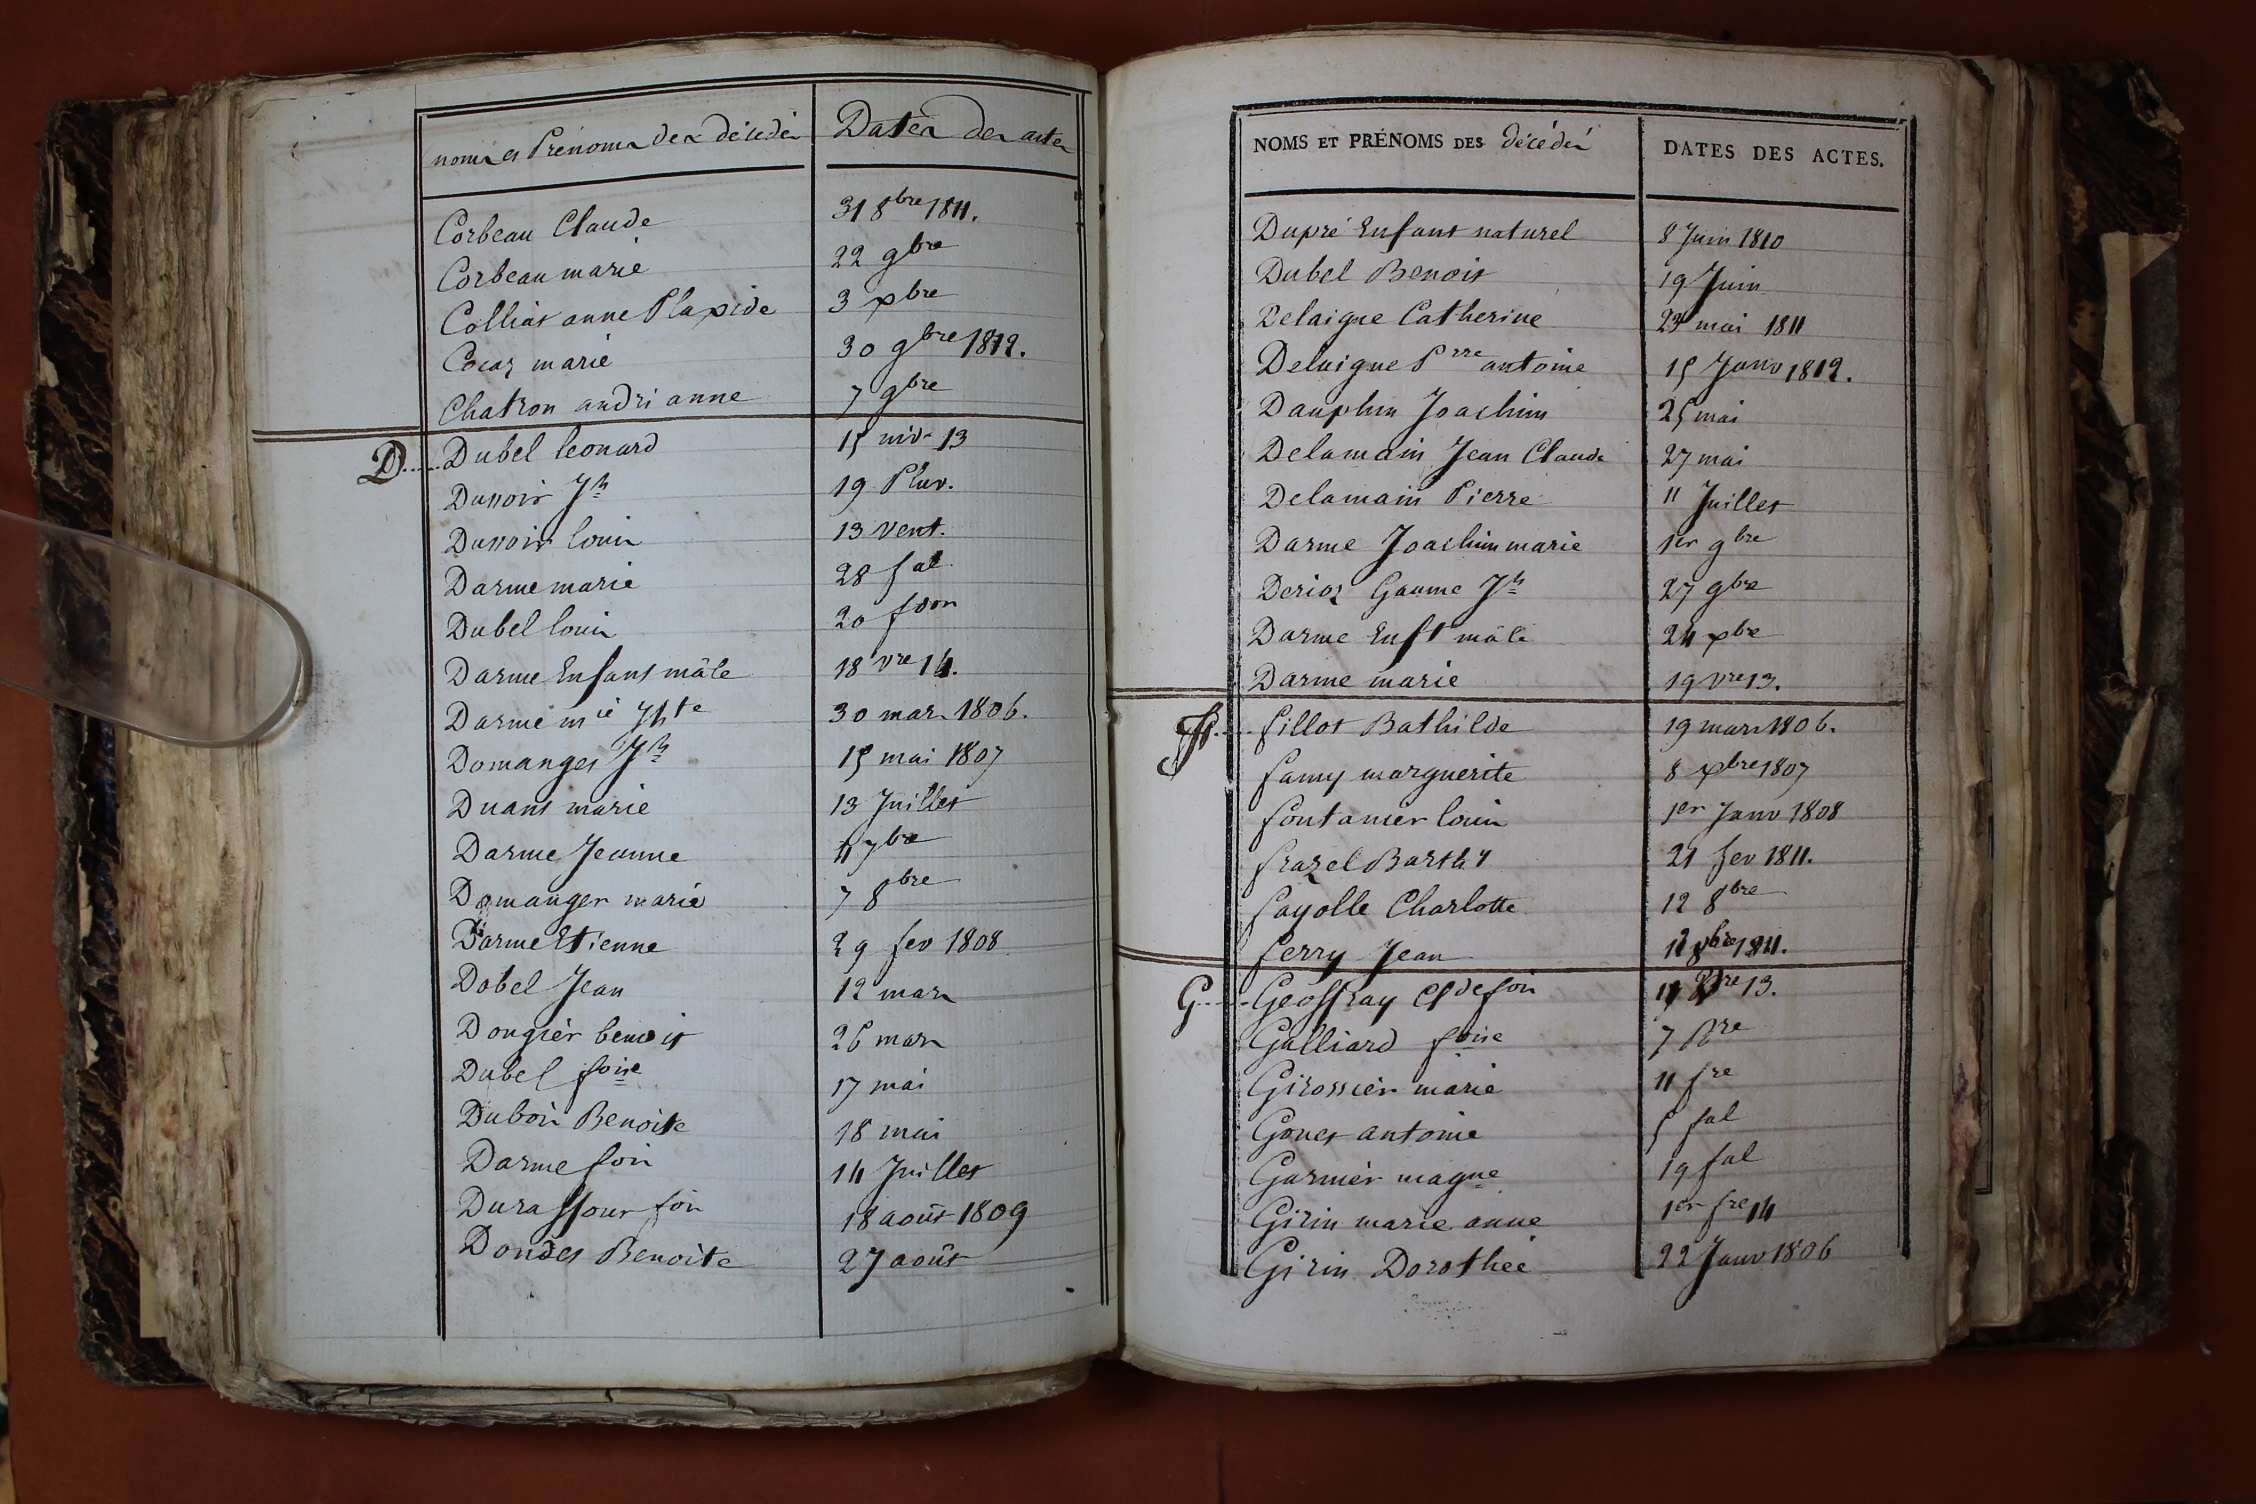 noms et Prénoms des décédés Dates des actes
Corbeau Claude 31 8bre 1811.
Corbeau marie 22 9bre
Colliat anne Placide 3 xbre
Cocaz marie 30 9bre 1812.
Chatron andri anne 7 9bre
D Dubel leonard 15 niv. 13
Dussoir Jh 19 Pluv.
Dussoir louis 13 vent.
Darme marie 28 fal
Dubel louis 20 fdor
Darme Enfant mâle 18 vre 14.
Darme mie Jhte 30 mars 1806.
Domanges Jh 15 mai 1807
Duant marie 13 Juillet
Darme Jeanne 11 7bre
Domanges marie 7 8bre
Darme Etienne 29 fev 1808
Dobel Jean 12 mars
Dougier benoit 26 mars
Dubel foise 17 mai
Dubois Benoite 18 mai
Darme fois 14 Juillet
Durassour fois 18 août 1809
Dondes Benoite 27 août
NOMS ET PRÉNOMS DES décédés DATES DES ACTES.
Dupré Enfant naturel 8 Juin 1810
Dubel Benoit 19 Juin
Delaigue Catherine 23 mai 1811
Delaigue Prre antoine 15 Janv 1812.
Dauphin Joachim 25 mai
Delamain Jean Claude 27 mai
Delamain Pierre 11 Juillet
Darme Joachim marie 1er 9bre
Derioz Gaume Jh 27 9bre
Darme Enft mâle 24 xbre
Darme marie 19 vre 13.
F fillot Bathilde 19 mars 1806.
famy marguerite 8 xbre 1807
fontanier louis 1er Janv 1808
frazel Barthy 21 fev 1811.
fayolle Charlotte 12 8bre
ferry Jean 1811.
G Geoffray Cl de fois 13.
Galliard foise 7
Girossier marie 11 fre
Gonet antoine 5 fal
Garnier magne 19 fal
Girin marie anne 1er fre 14
Girin Dorothée 22 Janv 1806